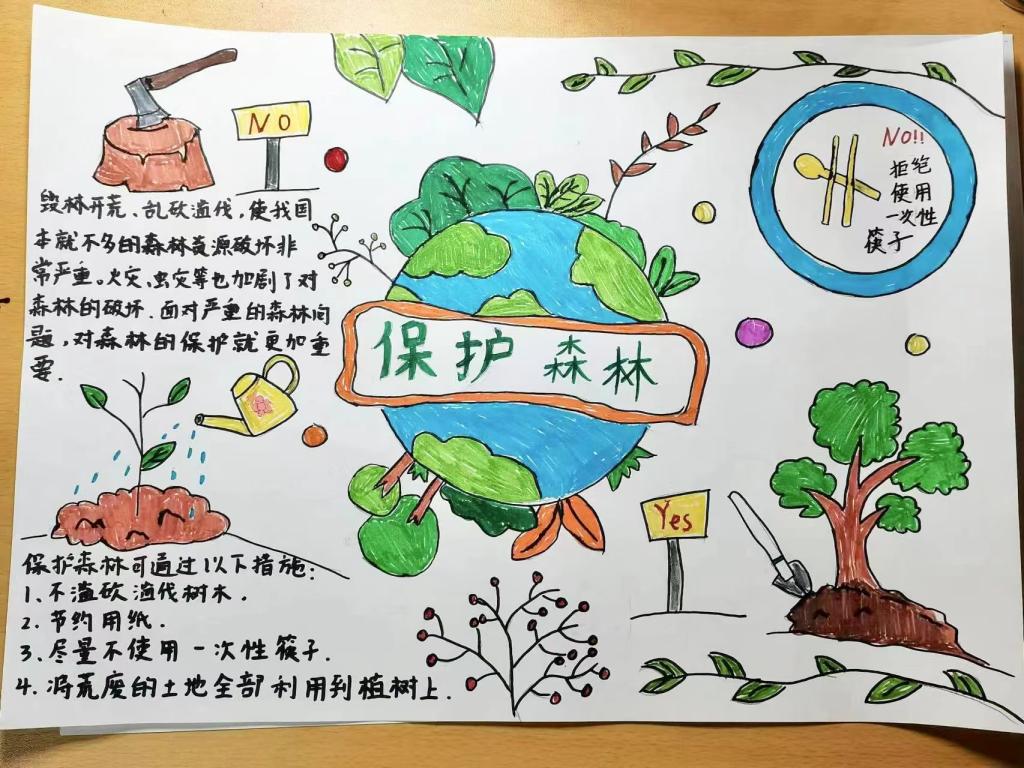 NO
毁林开荒、乱砍滥伐,使我国
本就不多的森林资源破坏非
常严重。火灾、虫灾等也加剧了对
森林的破坏.面对严重的森林问
题,对森林的保护就更加重
要.
保护 森林
NO!!
拒绝
使用
一次性
筷子
Yes
保护森林可通过以下措施:
1、不滥砍滥伐树木.
2.节约用纸.
3、尽量不使用一次性筷子.
4.将荒废的土地全部利用到植树上.